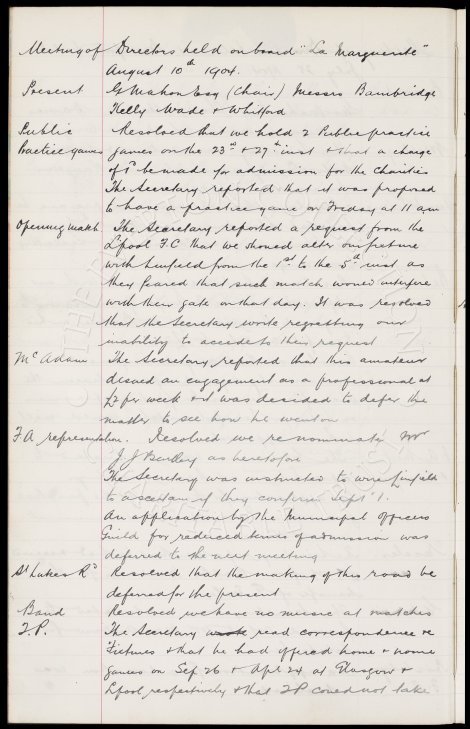 Meeting of Directors held on board "La Marguerite"
August 10th 1904.
Present G Mahon Esq (Chair) Messrs Bainbridge
Kelly Wade & Whitford
Public Resolved that we hold 2 Public practice
Practice games games on the 23rd & 27th inst & that a charge
of 1d be made for admission for the Charities
The Secretary reported that it was proposed
to have a practice game on Friday at 11 am
Opening match The Secretary reported a request from the
Lpool F.C that we should alter our fixture
with Linfield from the 1st to the 5th inst as
they feared that such match would interfere
with their gate on that day. It was resolved
that the Secretary write regretting our
inability to accede to their request
McAdam The Secretary reported that this amateur
desired an engagement as a professional at
£2 per week & it was decided to defer the
matter to see how he went on
F A representation. Resolved we renominate Mr
J. J Bentley as heretofore
The Secretary was instructed to wire Linfield
to ascertain if they confirm Sept 1.
An application by the Municipal Officers
Guild for reduced terms of admission was
deferred to the next meeting
St Lukes Rd Resolved that the making of this road be
deferred for the present
Band Resolved we have no music at matches
The Secretary read correspondence re
Fixtures & that he had offered home &
games on Sep 26 & Apl 24 at Glasgow &
Lpool respectively & that could not take